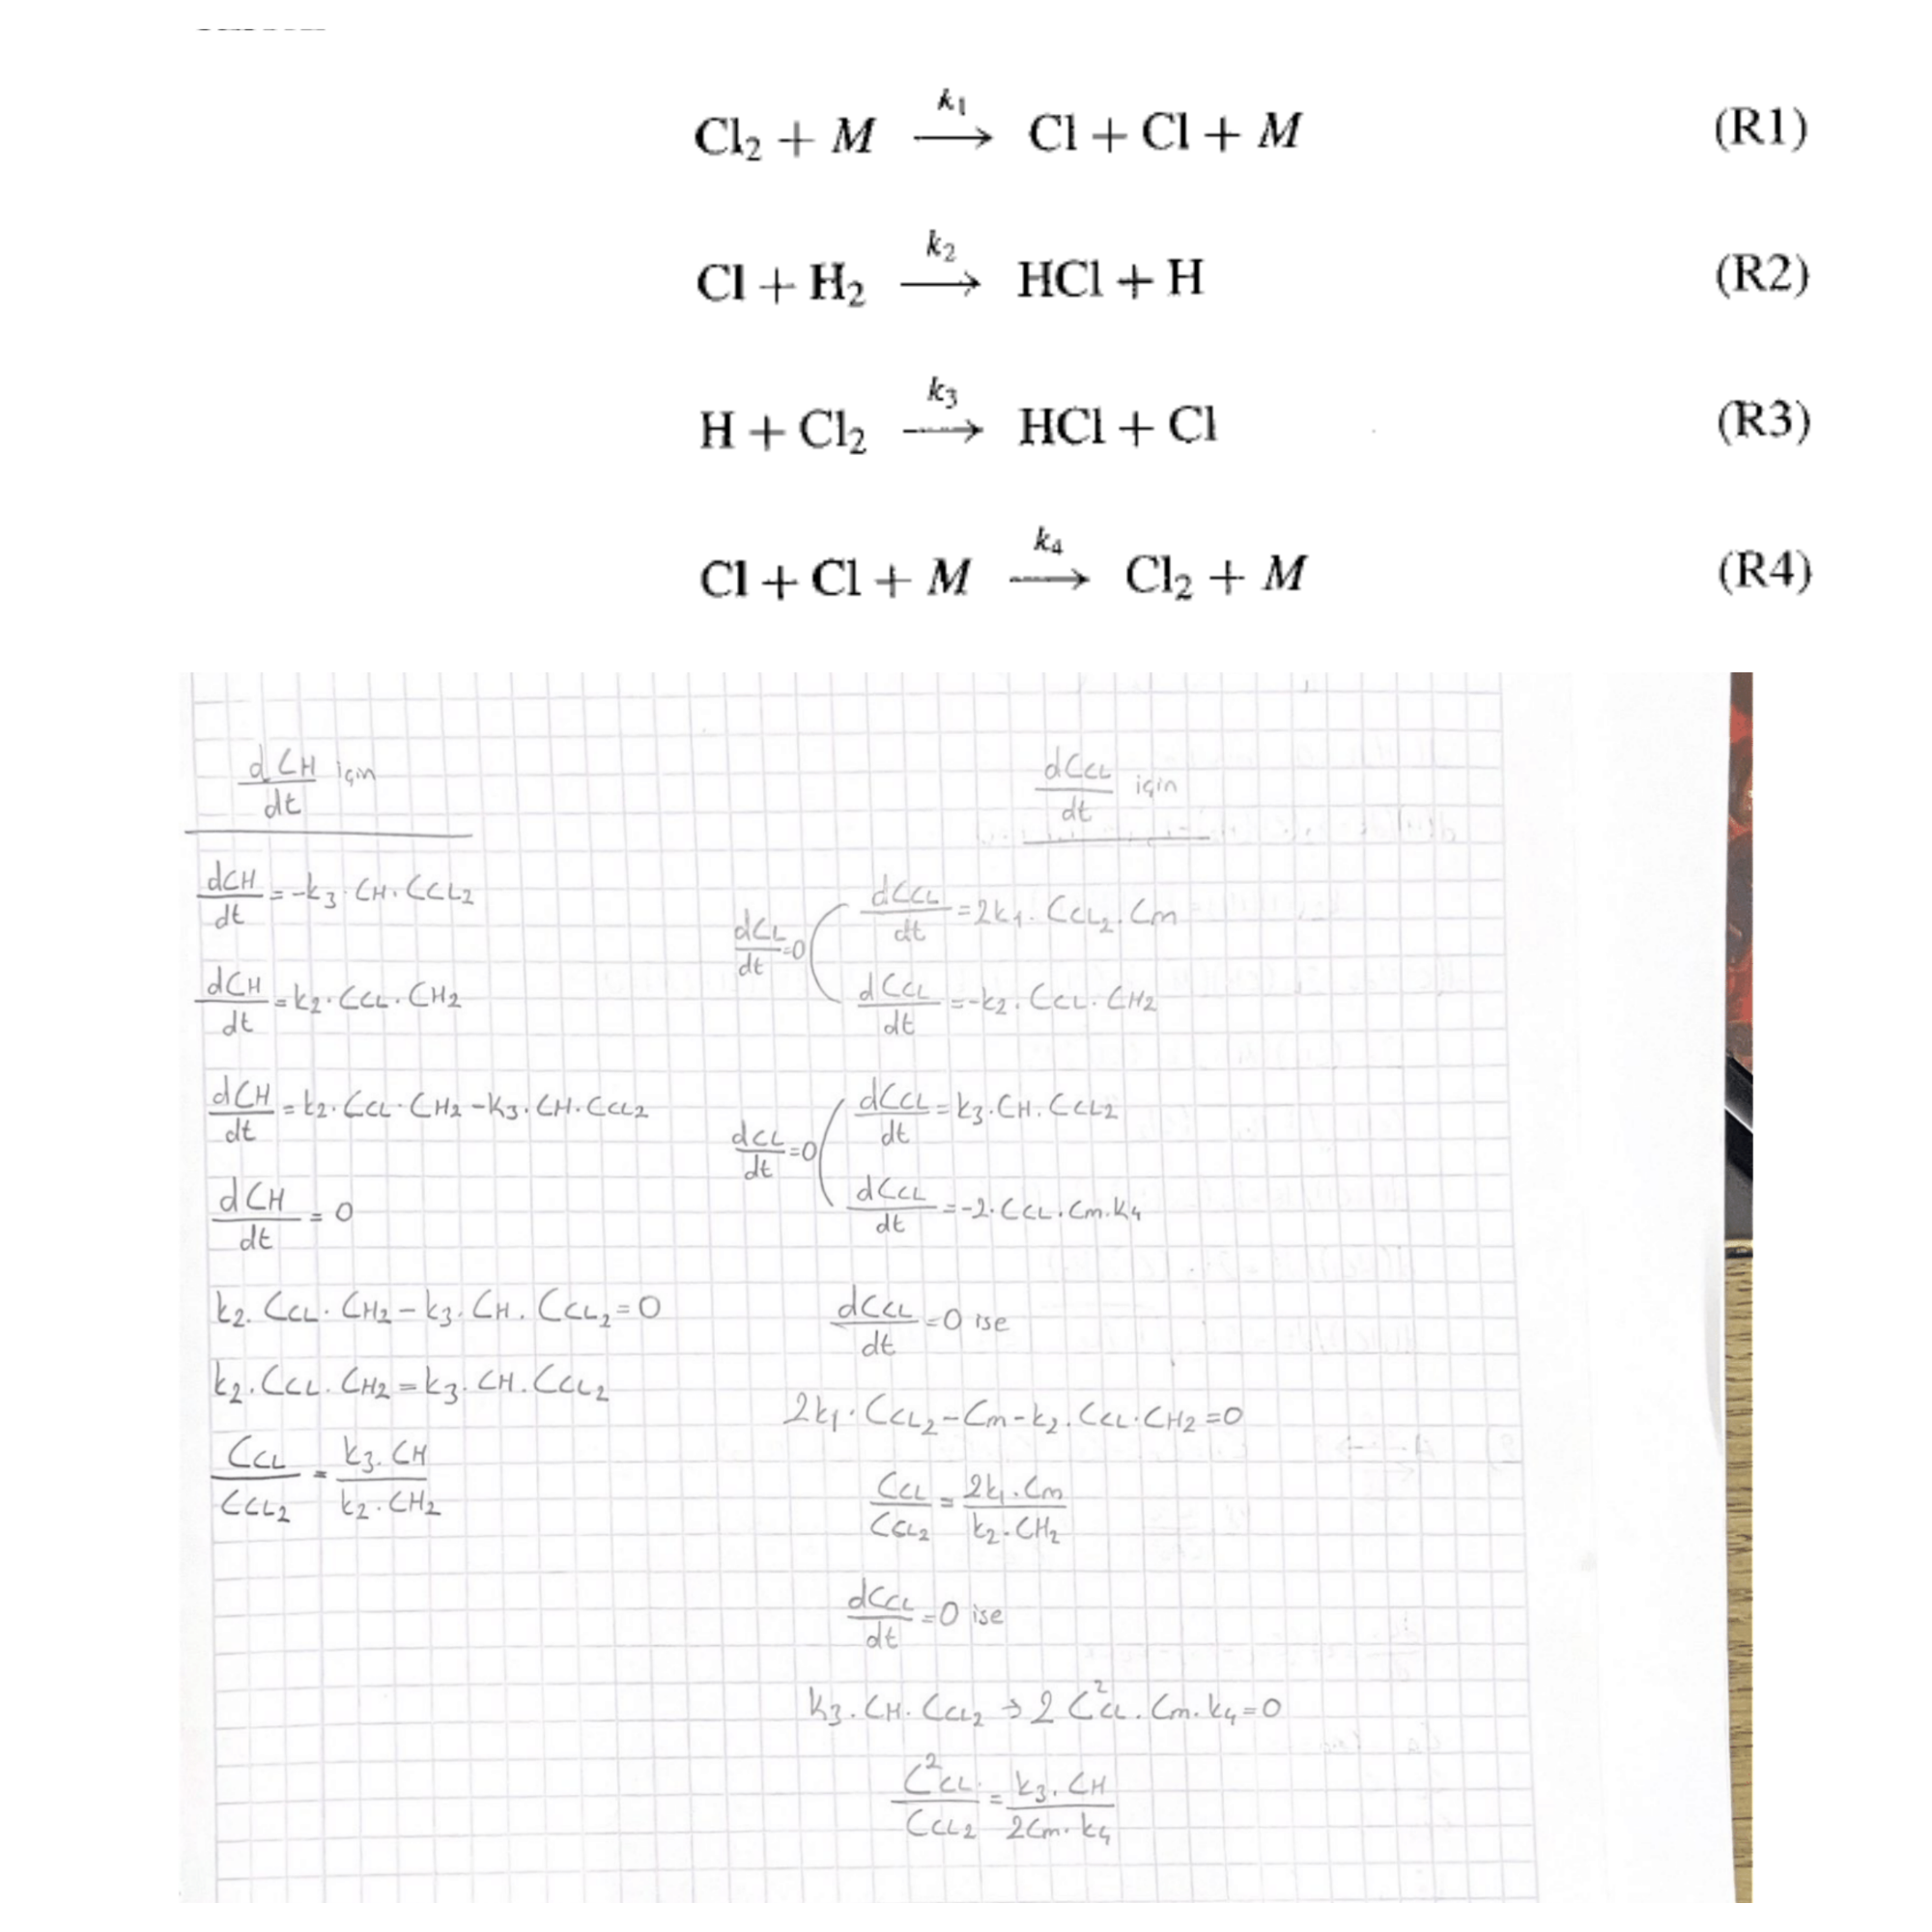 Cl₂ + M —k₁→ Cl + Cl + M (R1)
Cl + H₂ —k₂→ HCl + H (R2)
H + Cl₂ —k₃→ HCl + Cl (R3)
Cl + Cl + M —k₄→ Cl₂ + M (R4)
dCH/dt için
dCH/dt = -k₃ · CH · CCL₂
dCH/dt = k₂ · CCL · CH₂
dCH/dt = k₂ · CCL · CH₂ - k₃ · CH · CCL₂
dCH/dt = 0
k₂ · CCL · CH₂ - k₃ · CH · CCL₂ = 0
k₂ · CCL · CH₂ = k₃ · CH · CCL₂
CCL/CCL₂ = k₃ · CH/k₂ · CH₂
dCCL/dt için
dCL/dt = 0 ( dCCL/dt = 2k₁ · CCL₂ · Cm
dCCL/dt = -k₂ · CCL · CH₂
dCL/dt = 0 ( dCCL/dt = k₃ · CH · CCL₂
dCCL/dt = -2 · CCL · Cm · k₄
dCCL/dt = 0 ise
2k₁ · CCL₂ - Cm - k₂ · CCL · CH₂ = 0
CCL/CCL₂ = 2k₁ · Cm/k₂ · CH₂
dCCL/dt = 0 ise
k₃ · CH · CCL₂ → 2 C²CL · Cm · k₄ = 0
C²CL/CCL₂ = k₃ · CH/2Cm · k₄